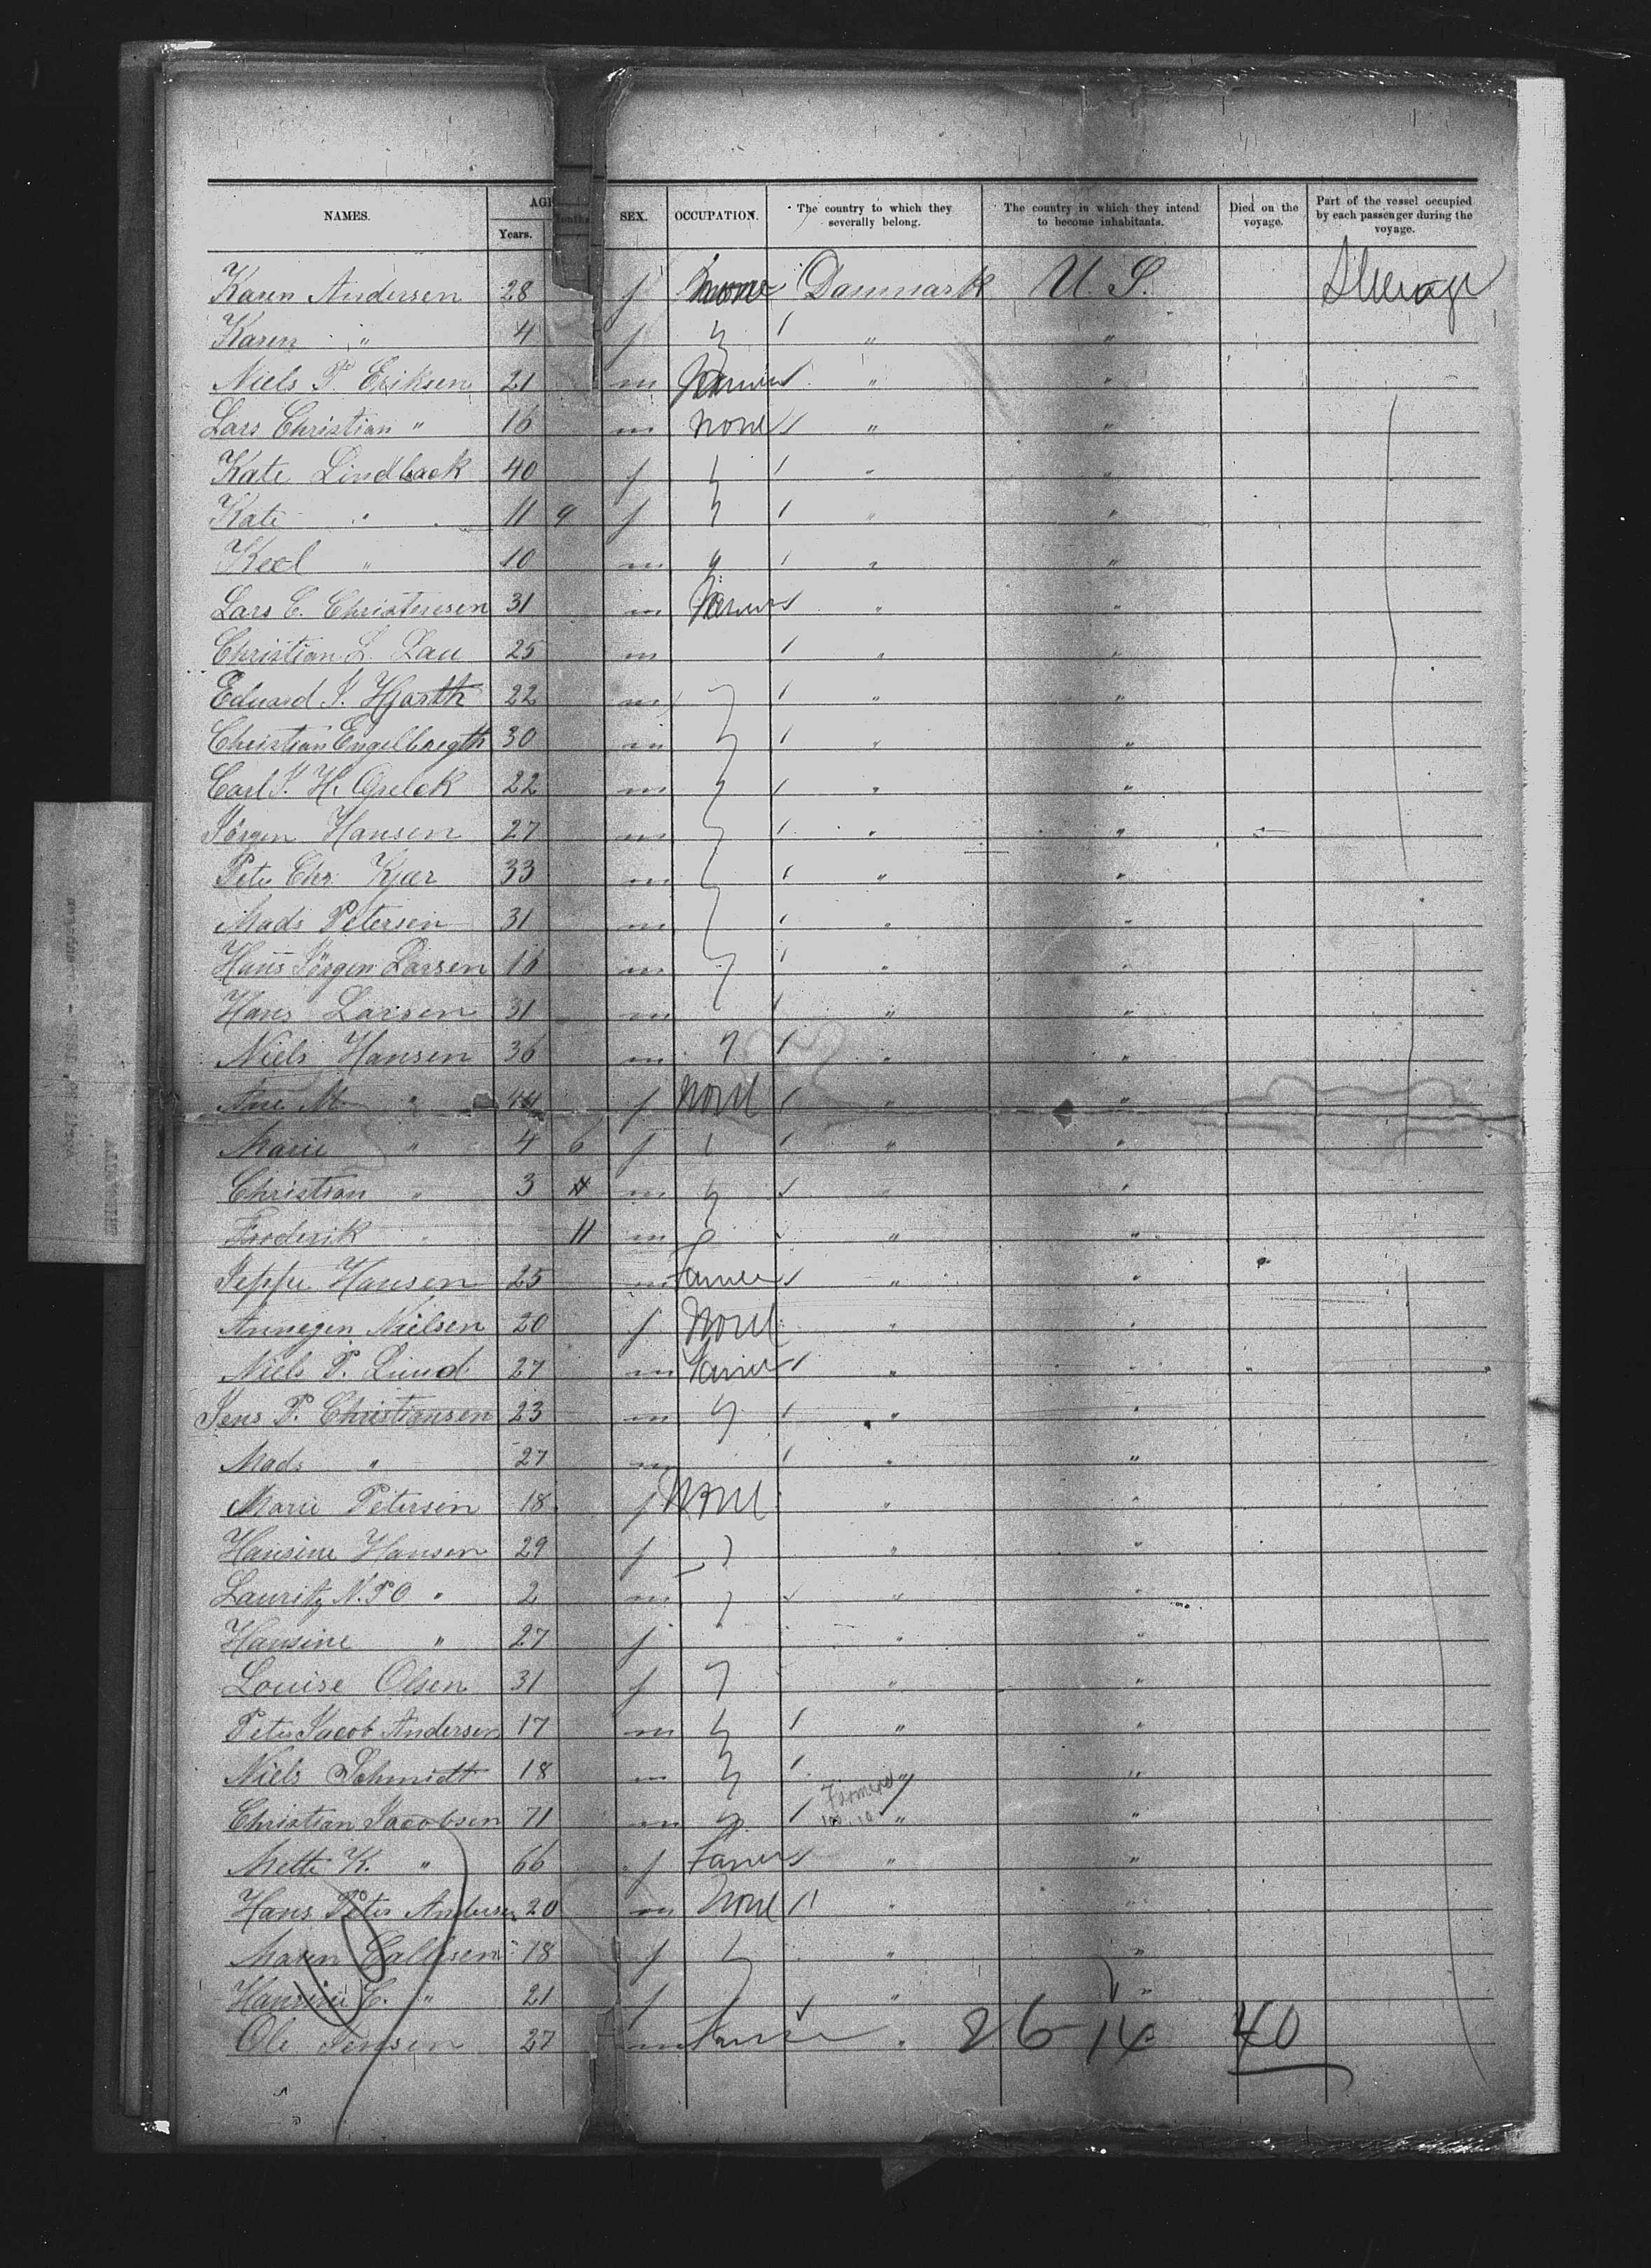 NAMES. AGE Years. Months. SEX. OCCUPATION. The country to which they severally belong. The country in which they intend to become inhabitants. Died on the voyage. Part of the vessel occupied by each passenger during the voyage.
Karen Andersen 28 f None Danmark U. S. Steerage
Karen " 4 f " "
Niels P. Eriksen 21 m Farmer " "
Lars Christian " 16 m None " "
Kate Lindback 40 f " "
Kate " 11 9 f " "
Keel " 10 m " "
Lars C. Christensen 31 m Farmer " "
Christian L. Lau 25 m " "
Eduard J. Hjorth 22 m " "
Christian Engelbregth 30 m " "
Carl J. H. Grelck 22 m " "
Jörgen Hansen 27 m " "
Peter Chr. Kjaer 33 m " "
Mads Petersen 31 m " "
Hans Jörgen Larsen 16 m " "
Hans Larsen 31 m " "
Niels Hansen 36 m " "
Ane M. " 44 f None " "
Marie " 4 6 f " "
Christian " 3 m " "
Frederik " 11 m " "
Jeppe Hansen 25 m Farmer " "
Annegen Nielsen 20 f None " "
Niels P. Lund 27 m Farmer " " " "
Jens P. Christiansen 23 m " "
Mads " 27 m " "
Marie Petersen 18 f None " "
Hansine Hansen 29 f " "
Lauritz N. P O " 2 m " "
Hansine " 27 f " "
Louise Olsen 31 f " "
Peter Jacob Andersen 17 m " "
Niels Schmidt 18 m " "
Christian Jacobsen 71 m Farmer " "
Mette K. " 66 f Farmer " "
Hans Peter Andersen 20 m None " "
Maren Callesen 18 f " "
Hansine C. " 21 f " "
Ole Jensen 27 m Farmer " 26-14 40